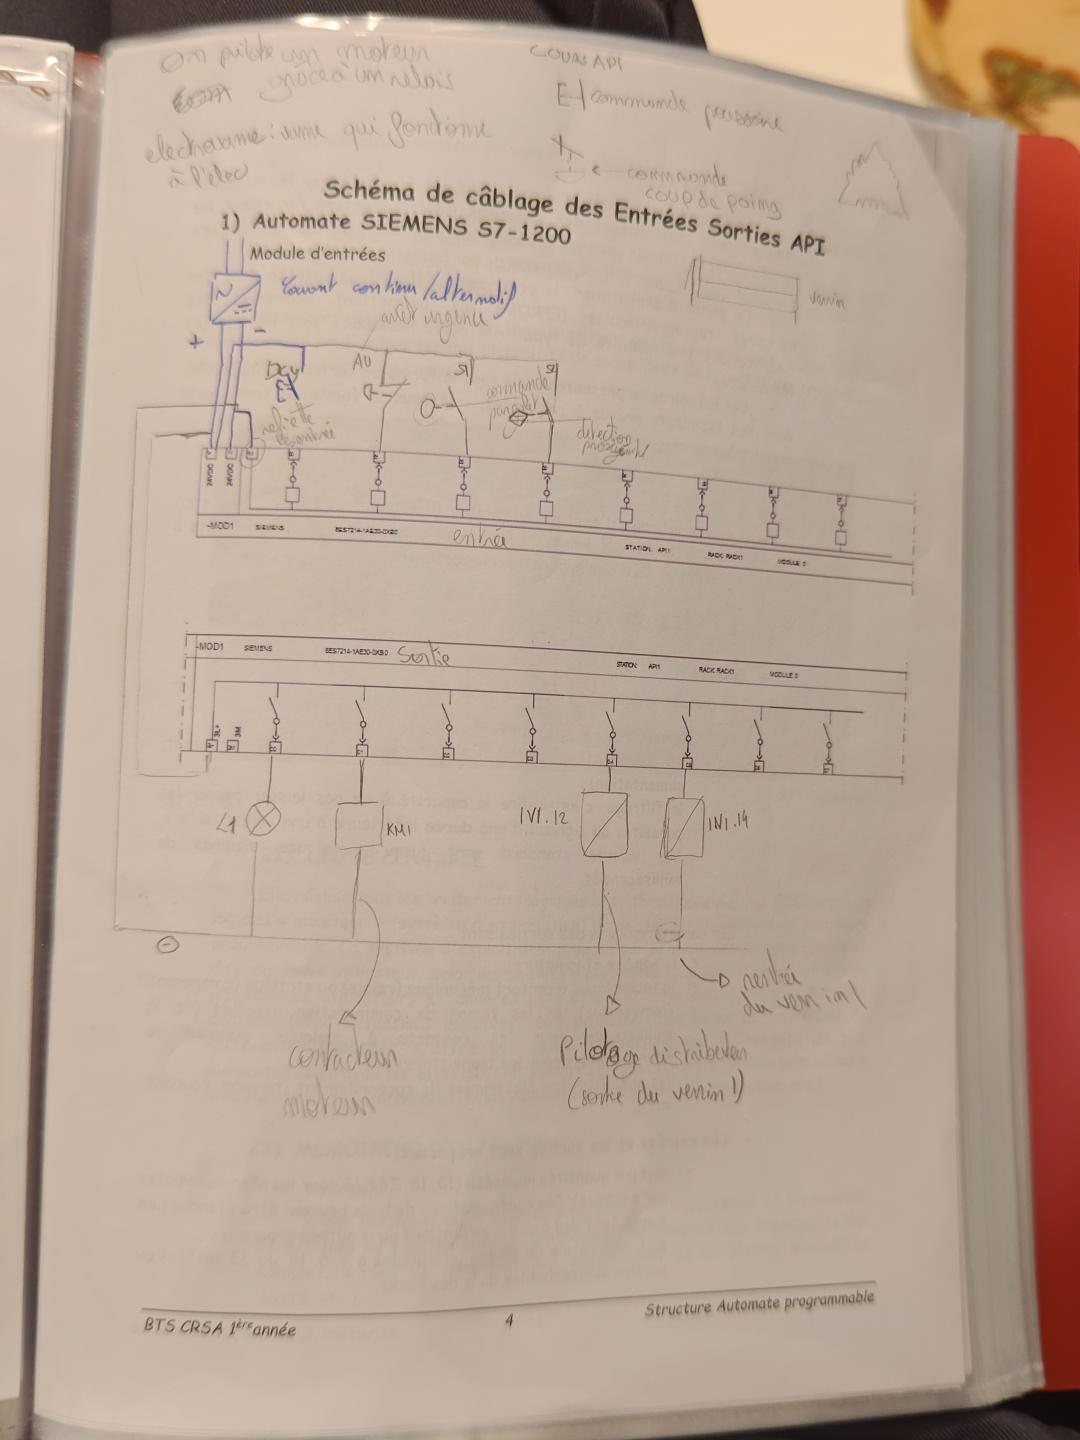 On pilote un moteur
grace à un relais
COURS API
E-| commande poussoire
electrovanne : vanne qui fonctionne
à l'élec
commande
coup de poing
Schéma de câblage des Entrées Sorties API
1) Automate SIEMENS S7-1200
Module d'entrées
Courant continu/alternatif
arret urgence
verin
+ -
Dcy
AU
S1
S2
commande
par galet
detection
24VDC
24VDC
-MOD1 SIEMENS 6ES7214-1AE30-0XB0 entrée STATION: API1 RACK: RACK1 MODULE: 0
-MOD1 SIEMENS 6ES7214-1AE30-0XB0 Sortie STATION: API1 RACK: RACK1 MODULE: 0
3L+
3M
L1
KM1
1V1.12
1V1.14
rentrée
du verin 1
contacteur
moteur
Pilotage distributeur
(sortie du verin 1)
BTS CRSA 1ère année
4
Structure Automate programmable